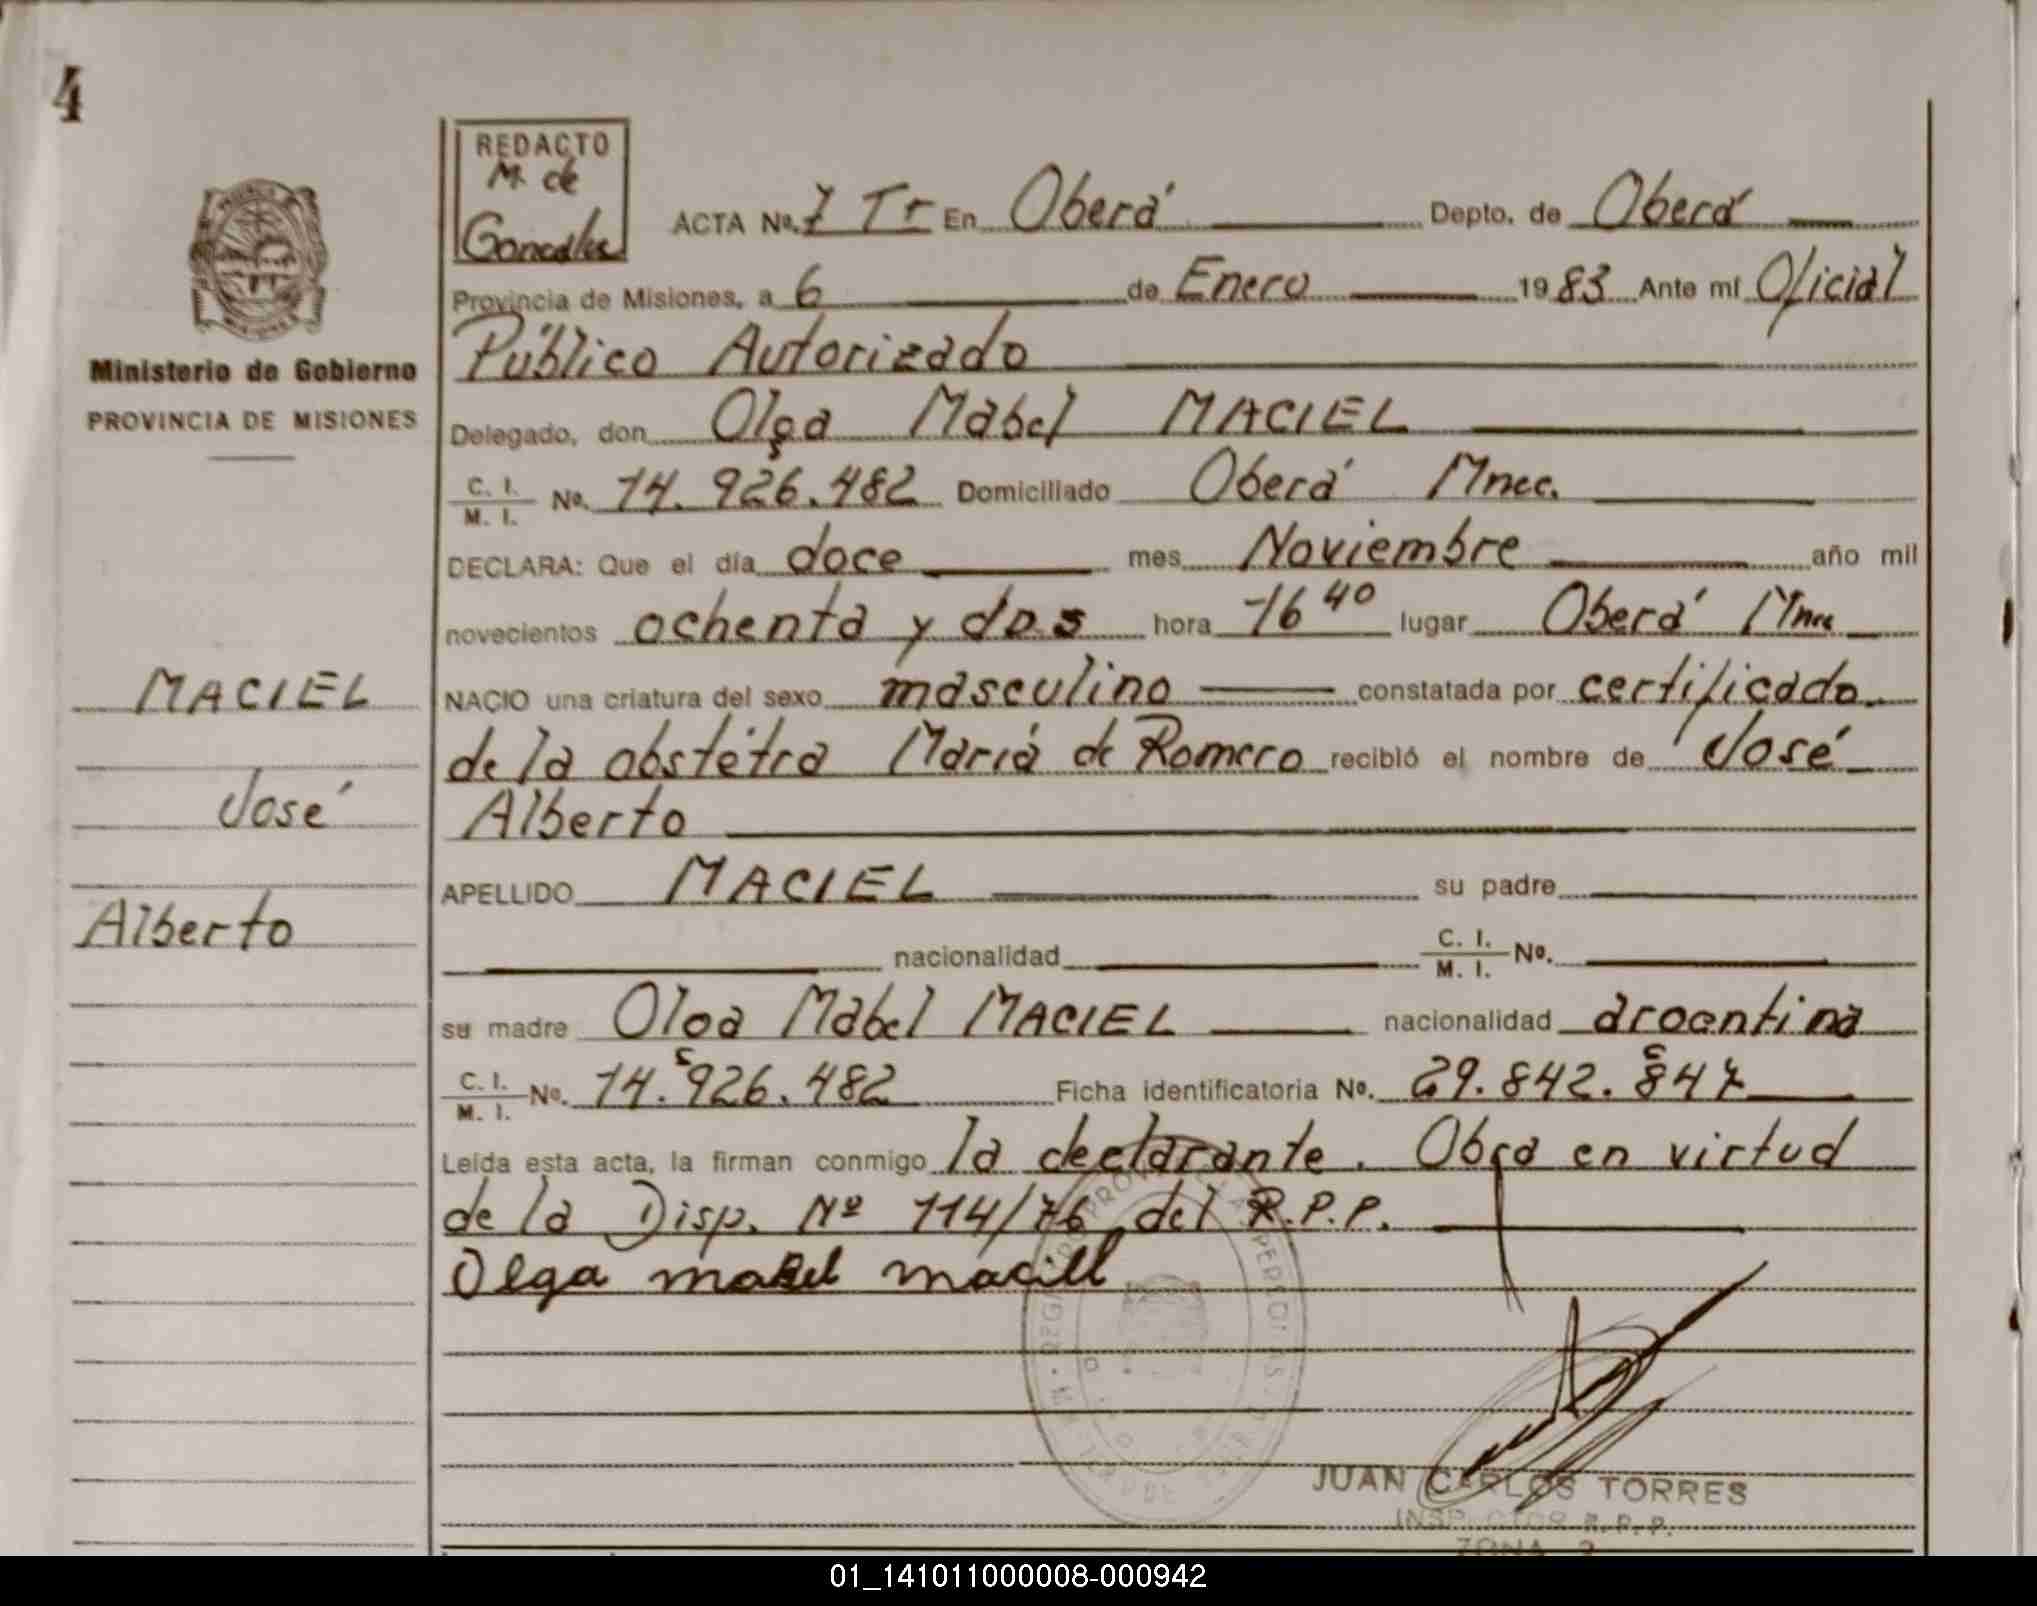 4
REDACTO
M. de
Gonzalez
ACTA Nº. 7 Tr En Oberá Depto. de Oberá
Provincia de Misiones, a 6 de Enero 1983 Ante mí Oficial
Público Autorizado
Ministerio de Gobierno
PROVINCIA DE MISIONES
Delegado, don Olga Mabel MACIEL
C. I. / M. I. Nº. 14.926.482 Domiciliado Oberá Mnes.
DECLARA: Que el día doce mes Noviembre año mil
novecientos ochenta y dos hora 16 40 lugar Oberá Mnes
MACIEL
José
Alberto
NACIO una criatura del sexo masculino constatada por certificado
de la obstétra María de Romero recibió el nombre de José
Alberto
APELLIDO MACIEL su padre
nacionalidad C. I. / M. I. Nº.
su madre Olga Mabel MACIEL nacionalidad argentina
C. I. / M. I. Nº. 14.926.482 Ficha identificatoria Nº. 29.842.847
Leída esta acta, la firman conmigo la declarante. Obra en virtud
de la Disp. Nº 114/76 del R.P.P.
Olga mabel maciel
JUAN CARLOS TORRES
INSPECTOR R.P.P.
ZONA 2
01_141011000008-000942